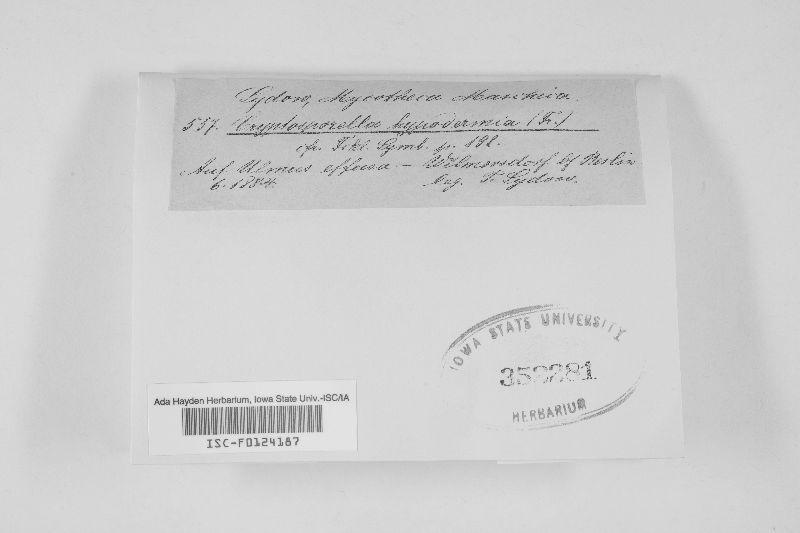 Sydow, Mycotheca Marchica.
557. Cryptosporella hypodermia (Fr.)
cfr. Fckl. Symb. p. 192.
Auf Ulmus effusa – Wilmersdorf bf Berlin
6. 1884. leg. P. Sydow.
IOWA STATE UNIVERSITY
HERBARIUM
Ada Hayden Herbarium, Iowa State Univ.-ISC/IA
ISC-F0124187